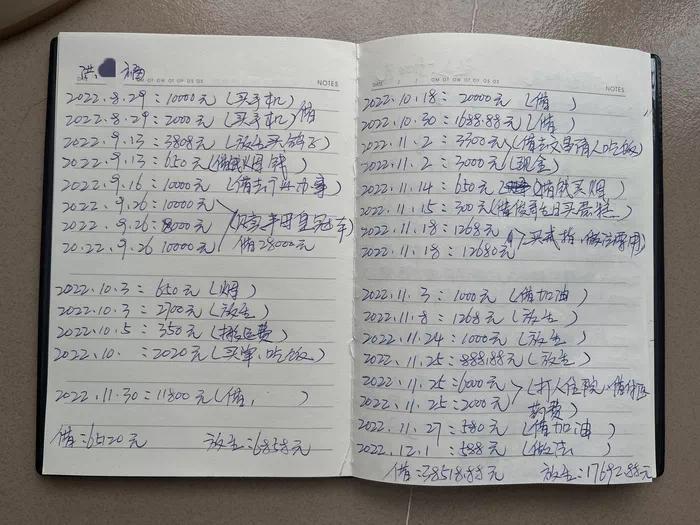 洪 福
NOTES
2022.8.29:10000元(买手机)
2022.8.29:2000元(买手机)借
2022.9.13:3808元(放生买鸽子)
2022.9.13:650元(借钱买烟钱)
2022.9.16:10000元(借去办事)
2022.9.26:10000元
2022.9.26:8000元(买丰田皇冠车)
2022.9.26 10000元 借28000元
2022.10.3:650元(烟)
2022.10.3:2700元(放生)
2022.10.5:350元(搬运费)
2022.10. :2020元(买单、吃饭)
2022.11.30:11800元(借, )
借:65120元 放生:6858元
DATE NOTES
2022.10.18:20000元(借 )
2022.10.30:1688.88元(借)
2022.11.2:3300元(借请人吃饭)
2022.11.2:3000元(现金)
2022.11.14:650元(借钱买烟)
2022.11.15:300元(借生日买蛋糕)
2022.11.18:1268元
2022.11.18:12680元(买戒指,做法事用)
2022.11.3:1000元(借加油)
2022.11.8:1268元(放生)
2022.11.24:1000元(放生)
2022.11.25:888.88元(放生)
2022.11.25:6000元(打人住院,借付医
2022.11.25:2000元 药费)
2022.11.27:580元(借加油)
2022.12.1:588元(做法)
借:38518.88元 放生:17692.88元